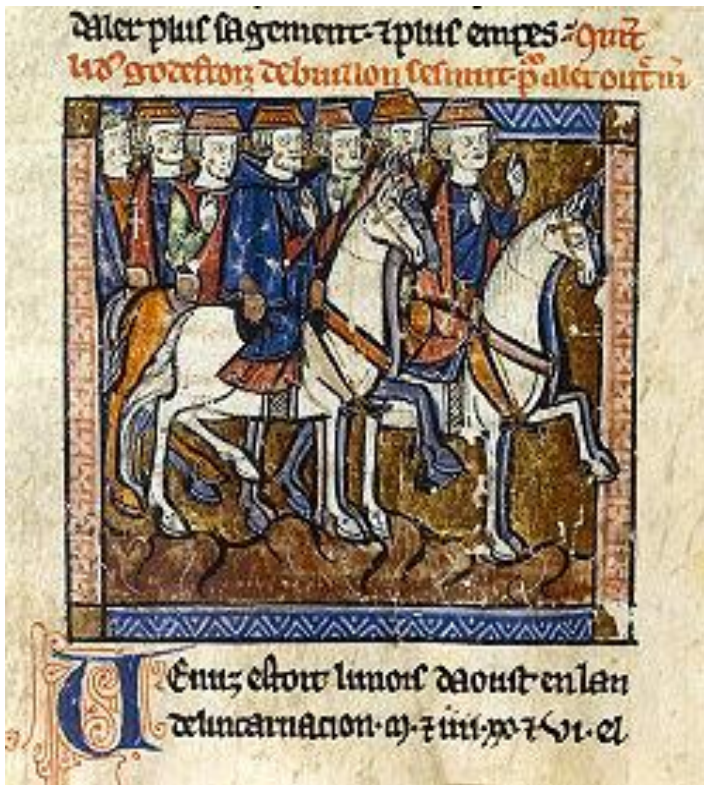 daler plus sagement · ⁊ plus empres · Quāt
li dˢ godefroiz de buillon sesmut · p̄ aler oult̄ m̄
Venuz estoit li mois daoust en lan
de lincarnacion · m · ⁊ iiii · xx · ⁊ xvi · el